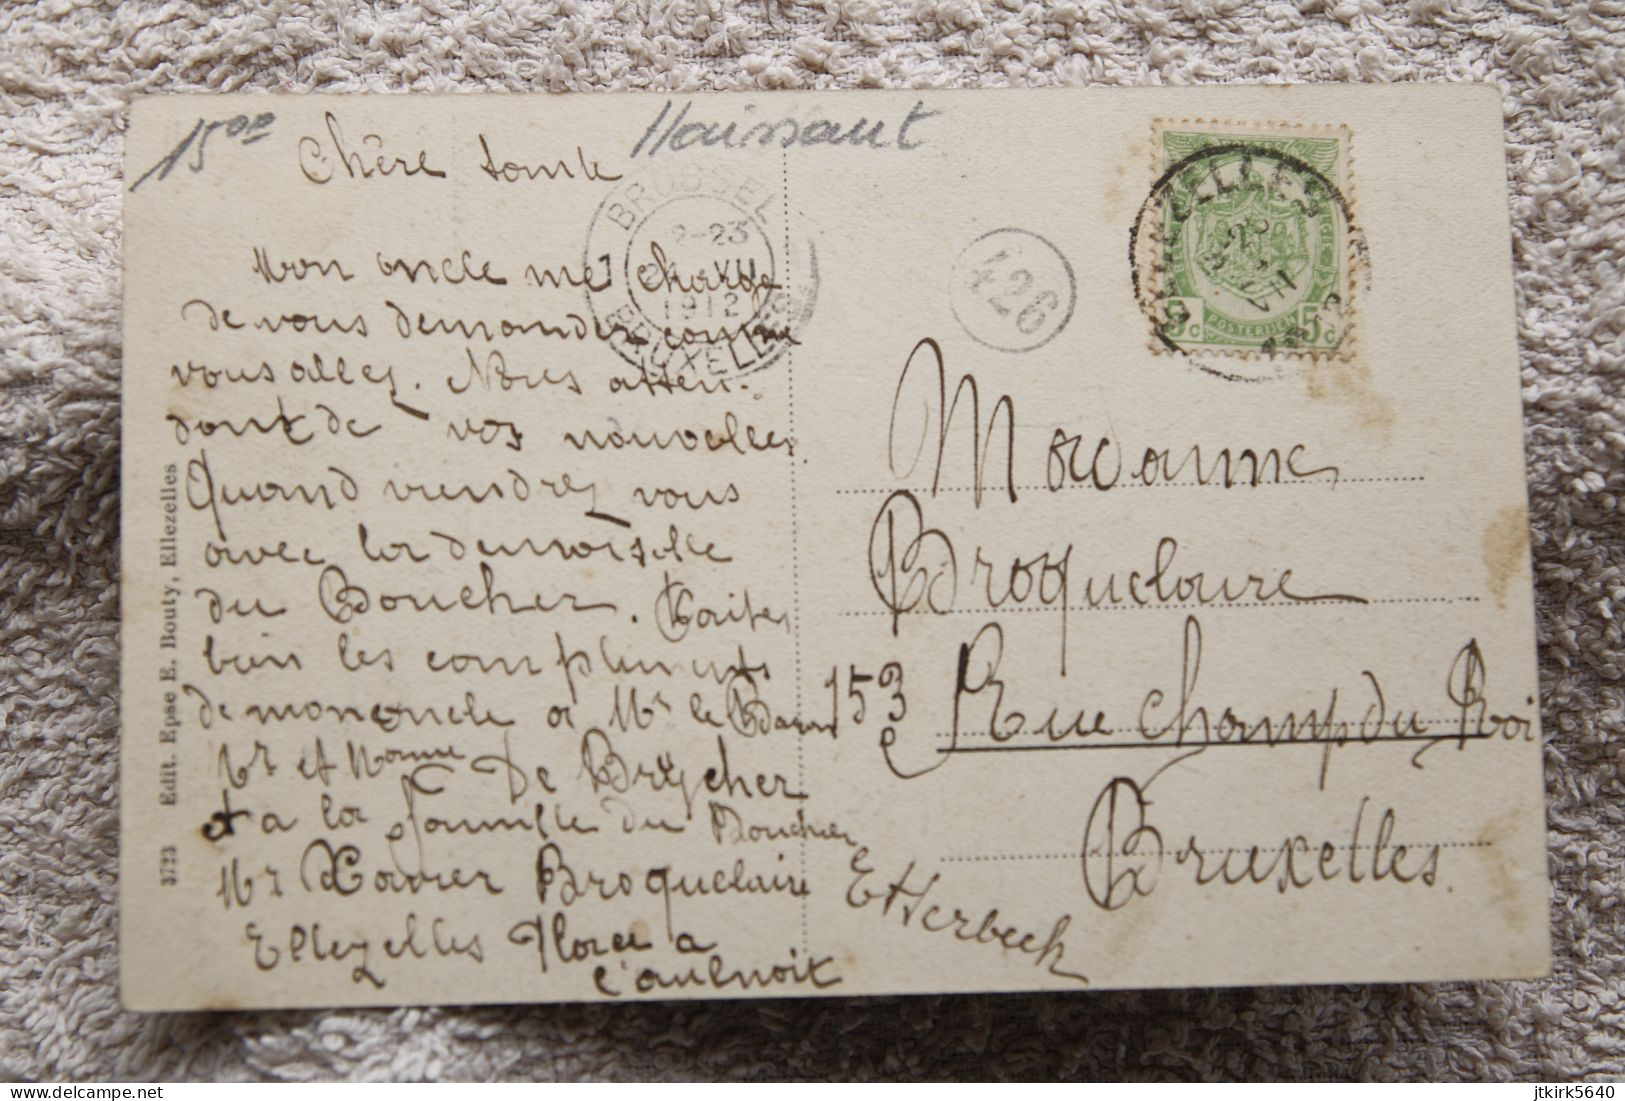 15 00
Hainaut
Chère tante
Mon oncle me charge
de vous demander comme
vous allez. Nous atten-
dont de vos nouvelles
Quand viendrez vous
avec la demoiselle
du Boucher. Faites
bien les compliments
de mon oncle a Mr le Baron
Mr et Mame De Brÿcher
et a la famille du Boucher
Mr Xavier Broquelaire
Ellezelles Place a
l'aulnoit
BRUSSEL
2-23
VII
1912
BRUXELLES
426
ELLEZELLES
POSTERIJEN
5c 5c
Madame
Broquelaire
153 Rue Champ du Roi
Bruxelles.
Etterbeek
3723 Edit. Epse E. Bouty, Ellezelles
delcampe.net
jtkirk5640